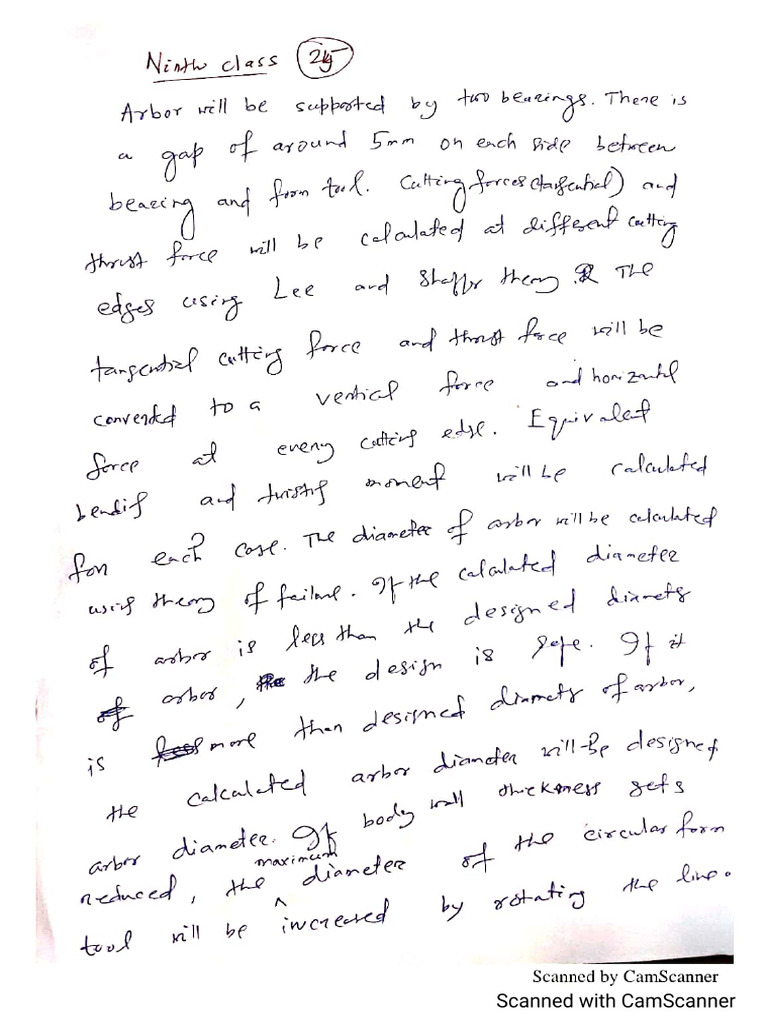 Ninth class
Arbor will be supported by two bearings. There is
a gap of around 5mm on each side between
bearing and form tool. Cutting forces (tangential) and
thrust force will be calculated at different cutting
edges using Lee and Shaffer theory. The
tangential cutting force and thrust force will be
converted to a vertical force and horizontal
force at every cutting edge. Equivalent
bending and twisting moment will be calculated
for each case. The diameter of arbor will be calculated
using theory of failure. If the calculated diameter
of arbor is less than the designed diameter
of arbor, the design is safe. If it
is more than designed diameter of arbor,
the calculated arbor diameter will be designed
arbor diameter. If body wall thickness gets
reduced, the maximum diameter of the circular form
tool will be increased by rotating the line.
Scanned by CamScanner
Scanned with CamScanner